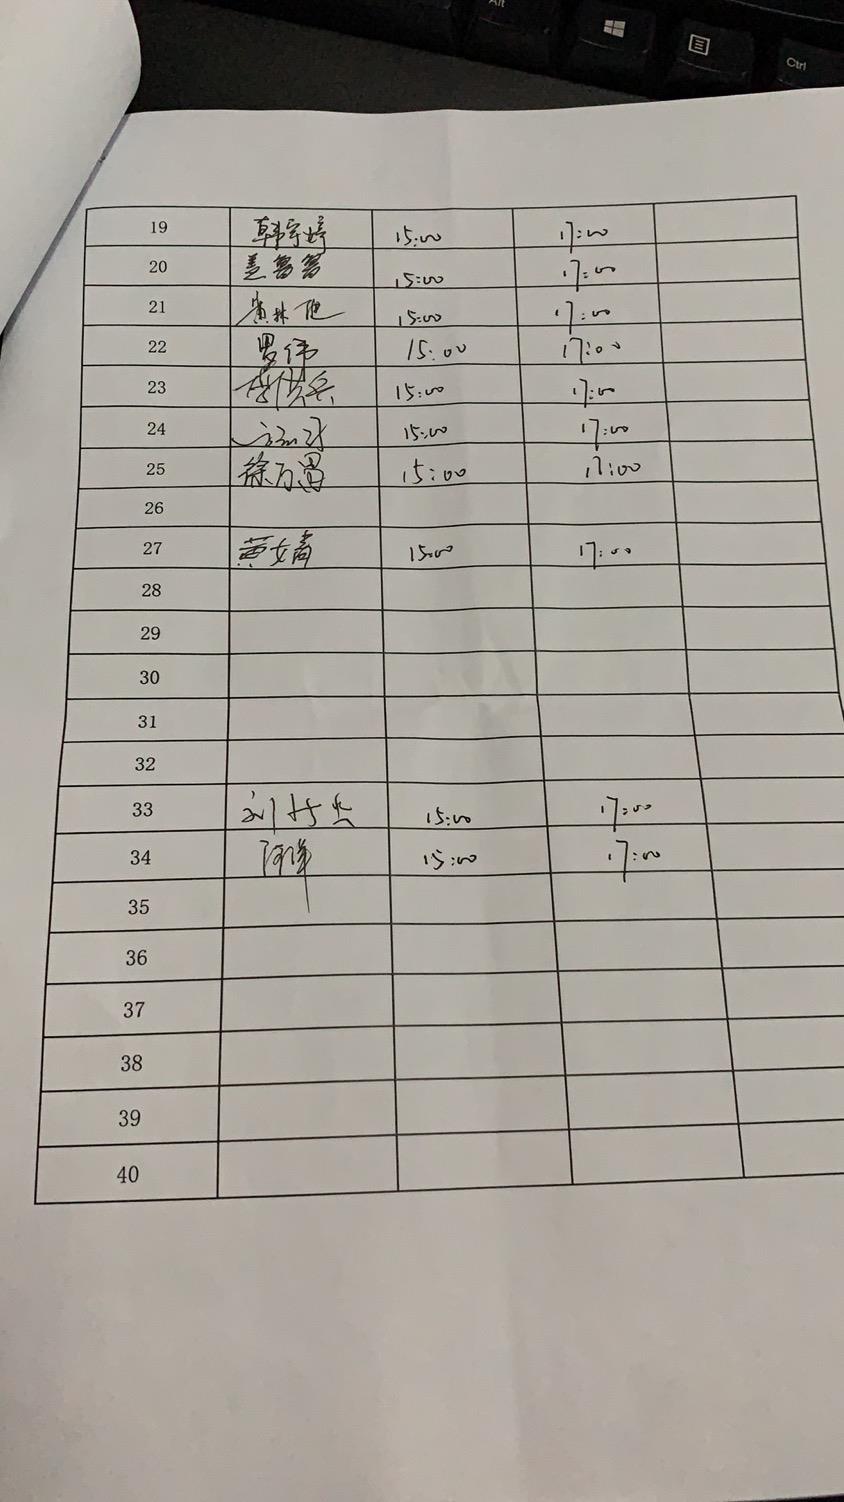 Alt
Ctrl
19 韩宇婷 15:00 17:00
20 15:00 17:00
21 黄林 15:00 17:00
22 罗伟 15:00 17:00
23 15:00 17:00
24 15:00 17:00
25 徐万富 15:00 17:00
26
27 黄文嵩 15:00 17:00
28
29
30
31
32
33 刘 15:00 17:00
34 15:00 17:00
35
36
37
38
39
40